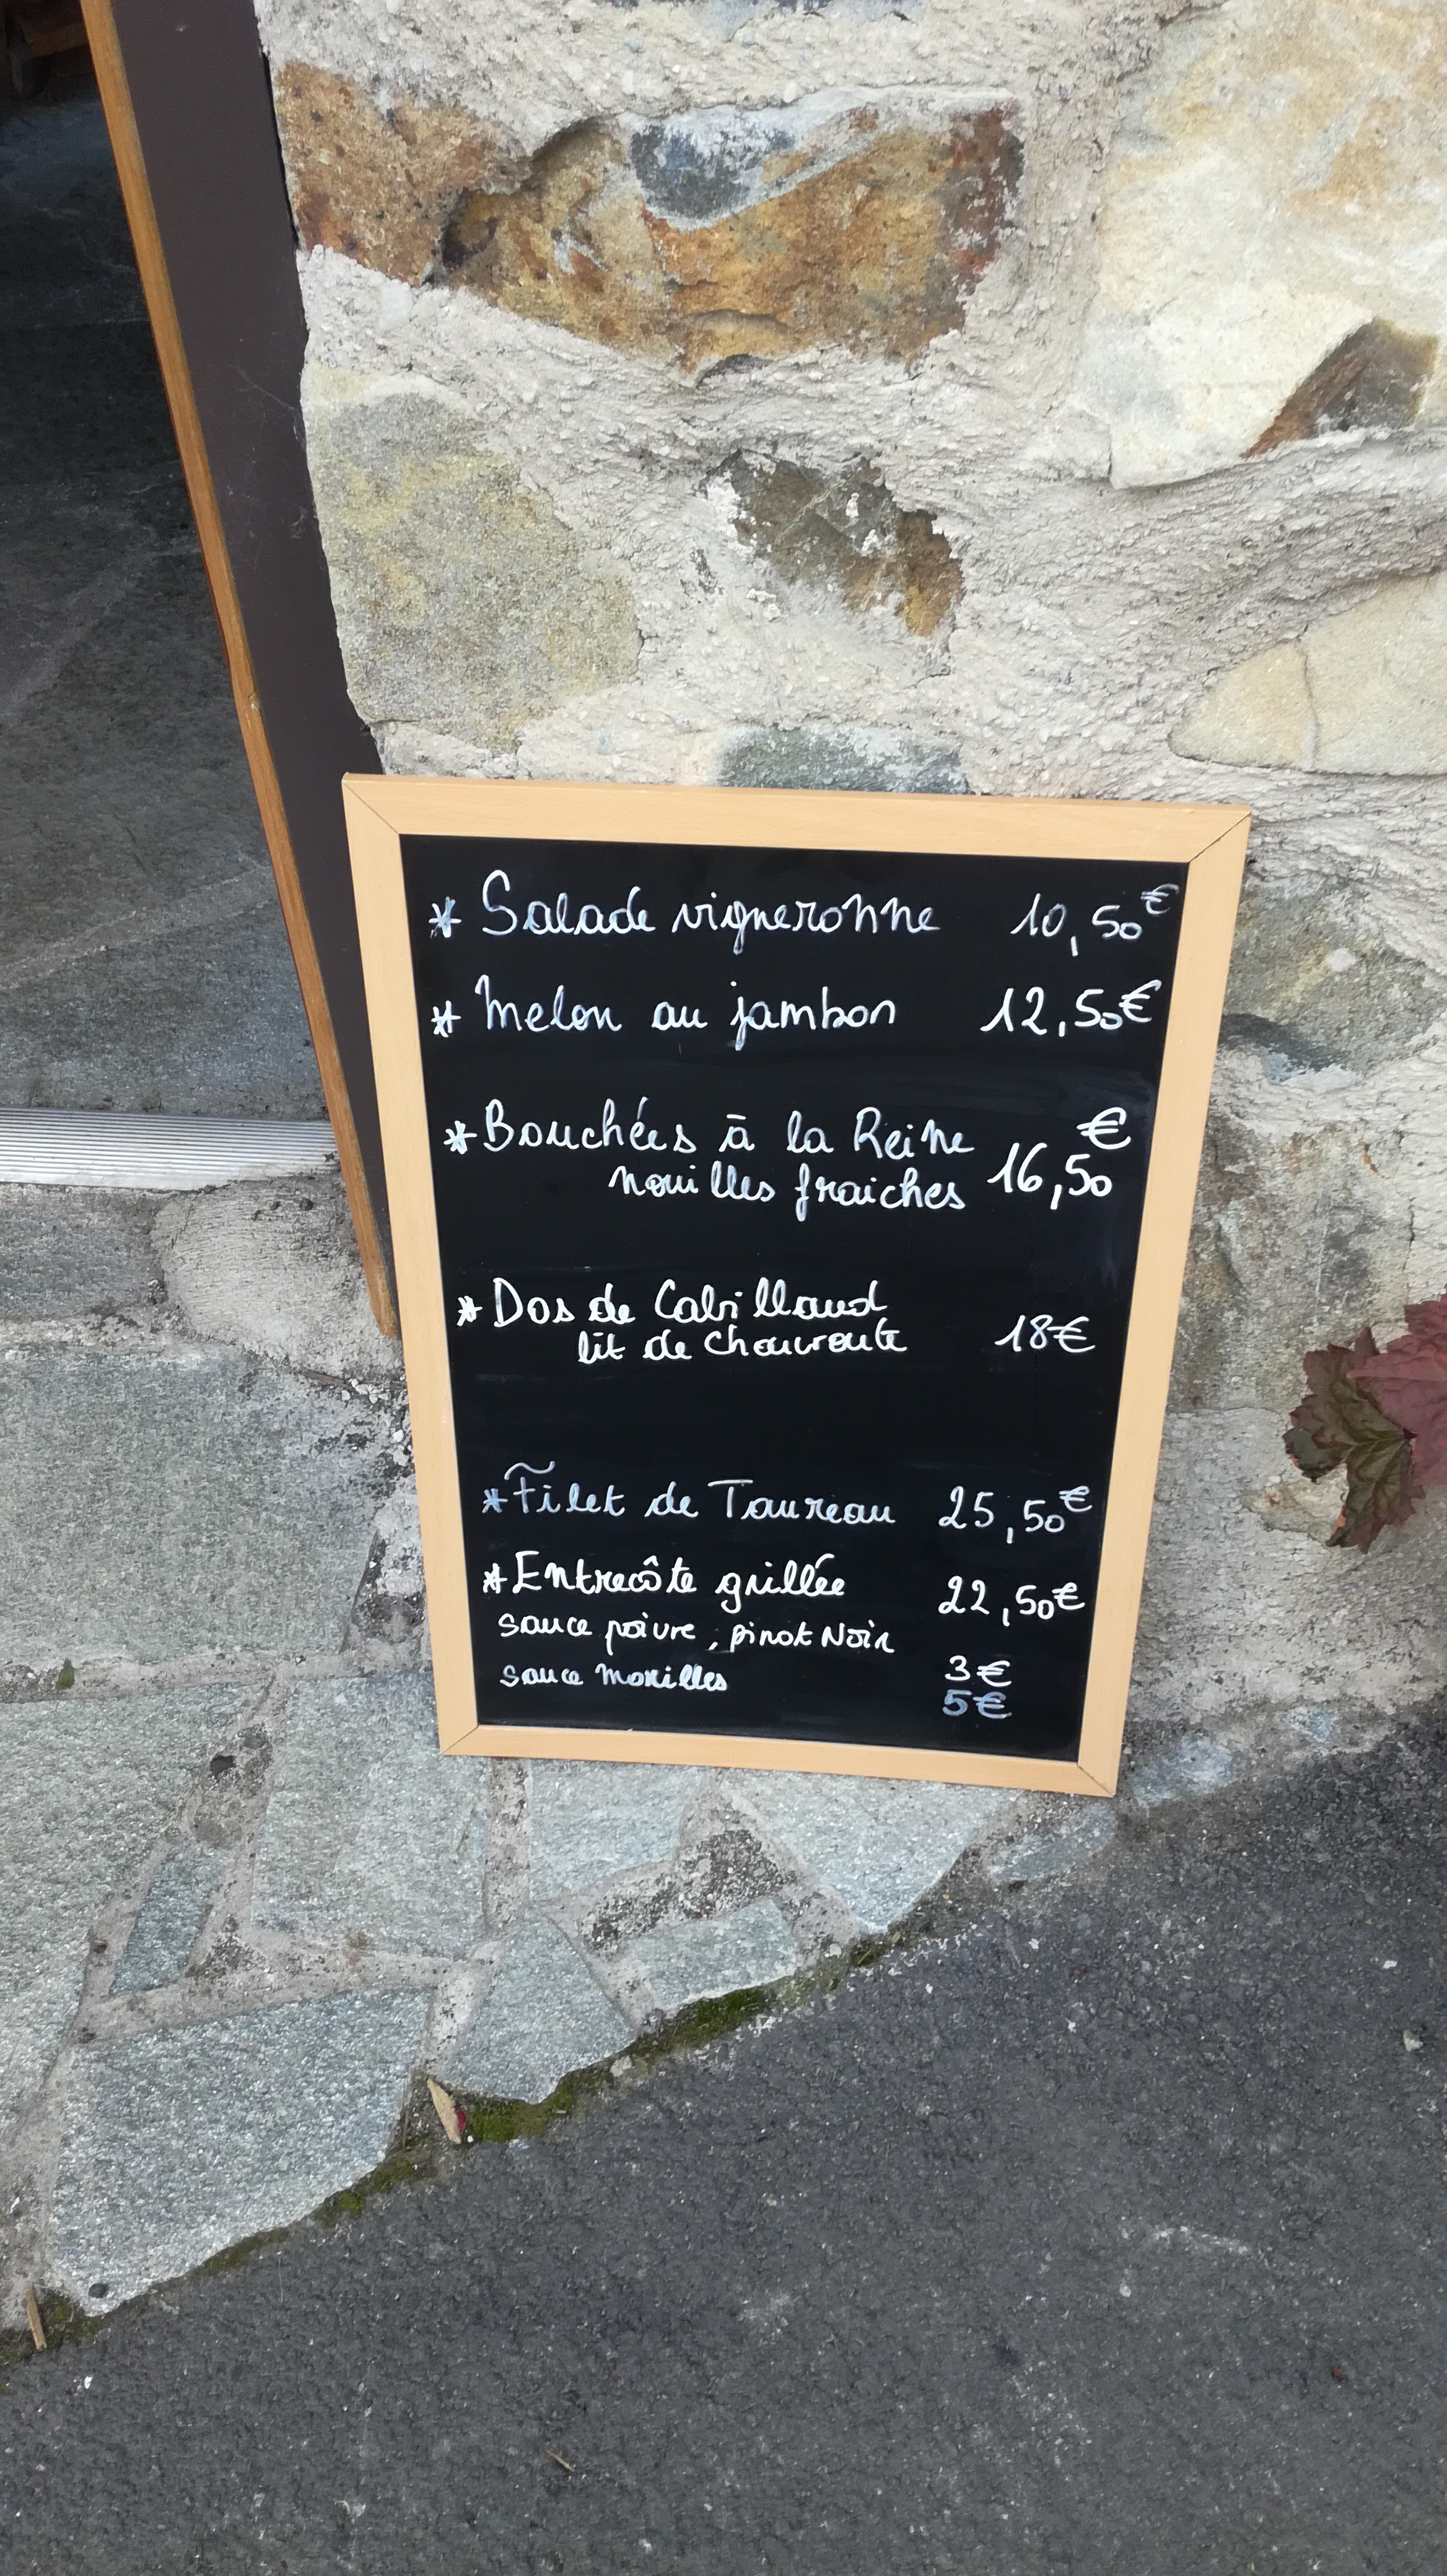 * Salade vigneronne 10,50€
* Melon au jambon 12,50€
* Bouchées à la Reine €
nouilles fraiches 16,50
* Dos de Cabillaud
lit de Choucroute 18€
* Filet de Taureau 25,50€
* Entrecôte grillée 22,50€
sauce poivre, pinot Noir 3€
sauce Morilles 5€